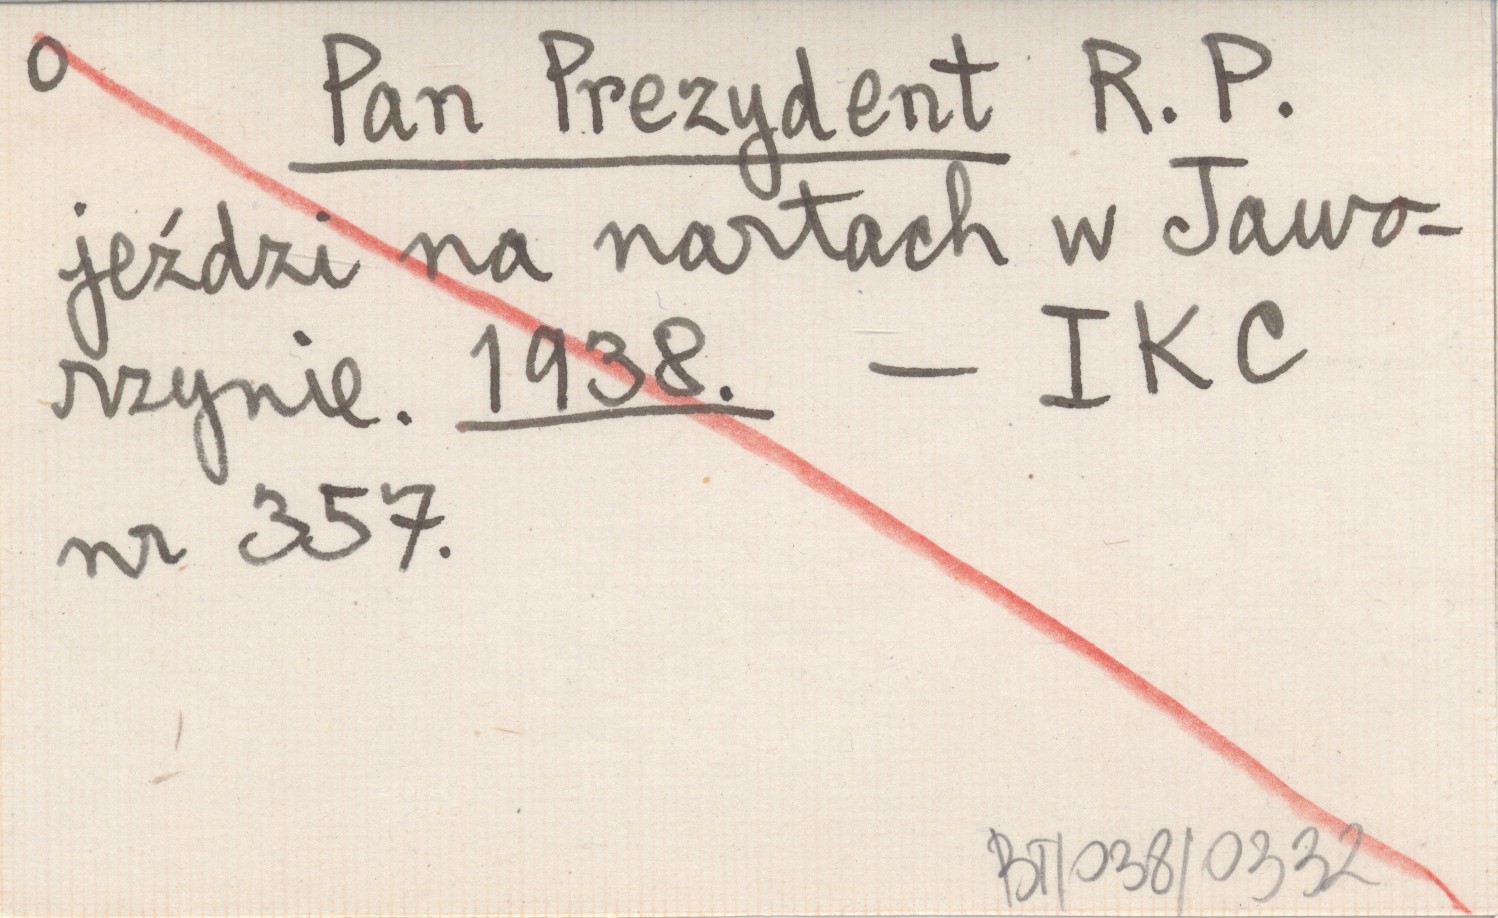 O
Pan Prezydent R. P.
jeździ na nartach w Jawo-
rzynie. 1938. — IKC
nr 357.
BT/038/0332